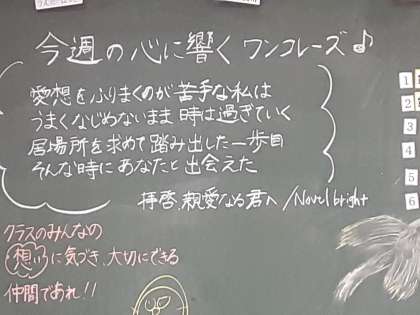 今週の心に響くワンフレーズ♪
愛想をふりまくのが苦手な私は
うまくなじめないまま時は過ぎていく
居場所を求めて踏み出した一歩目
そんな時にあなたと出会えた
拝啓、親愛なる君へ/Novelbright
クラスのみんなの
想いに気づき、大切にできる
仲間であれ!!
1
2
3
4
5
6